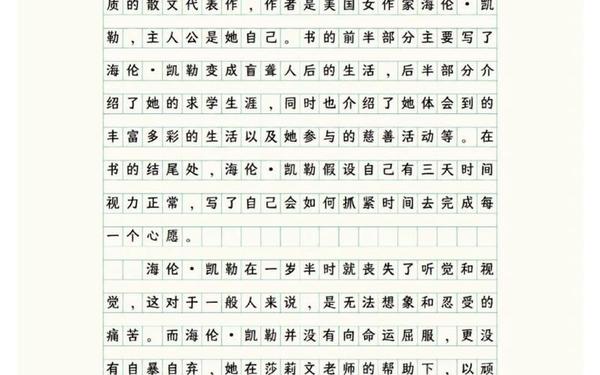 质的散文代表作，作者是美国女作家海伦·凯
勒，主人公是她自己。书的前半部分主要写了
海伦·凯勒变成盲聋人后的生活，后半部分介
绍了她的求学生涯，同时也介绍了她体会到的
丰富多彩的生活以及她参与的慈善活动等。在
书的结尾处，海伦·凯勒假设自己有三天时间
视力正常，写了自己会如何抓紧时间去完成每
一个心愿。
海伦·凯勒在一岁半时就丧失了听觉和视
觉，这对于一般人来说，是无法想象和忍受的
痛苦。而海伦·凯勒并没有向命运屈服，更没
有自暴自弃，她在莎莉文老师的帮助下，以顽